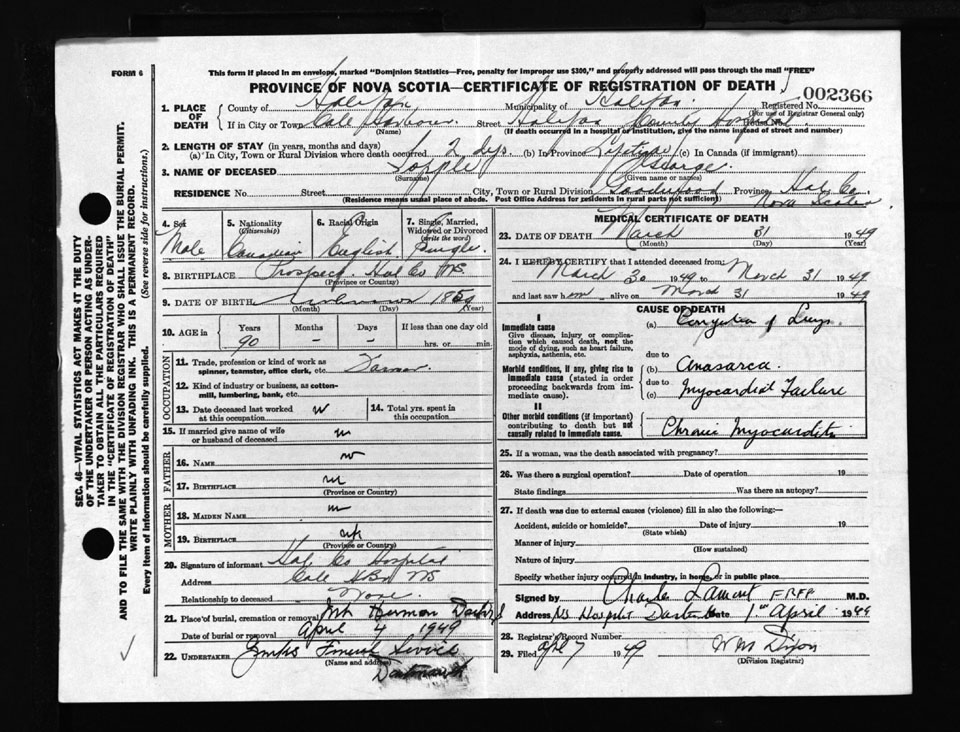 FORM 6
This form if placed in an envelope, marked "Dominion Statistics—Free, penalty for improper use $300," and properly addressed will pass through the mail "FREE"
PROVINCE OF NOVA SCOTIA—CERTIFICATE OF REGISTRATION OF DEATH
002366
1. PLACE OF DEATH
County of Halifax Municipality of Halifax Registered No.
(For use of Registrar General only)
If in City or Town Cole Harbour Street Halifax County Hospital House No.
(Name) (If death occurred in a hospital or institution, give the name instead of street and number)
2. LENGTH OF STAY (in years, months and days)
(a) In City, Town or Rural Division where death occurred 2 dys. (b) In Province Lifetime (c) In Canada (if immigrant)
3. NAME OF DECEASED George
(Surname) (Given name or names)
RESIDENCE No. Street City, Town or Rural Division Goodwood Province Hal. Co. Nova Scotia
(Residence means usual place of abode. Post Office Address for residents in rural parts not sufficient)
4. Sex Male
5. Nationality (Citizenship) Canadian
6. Racial Origin English
7. Single, Married, Widowed or Divorced (write the word) Single
8. BIRTHPLACE Prospect Hal Co NS
(Province or Country)
9. DATE OF BIRTH Unknown 1859
(Month) (Day) (Year)
10. AGE in Years Months Days If less than one day old
90 - - hrs. or min.
OCCUPATION
11. Trade, profession or kind of work as spinner, teamster, office clerk, etc. Farmer
12. Kind of industry or business, as cotton-mill, lumbering, bank, etc.
13. Date deceased last worked at this occupation
14. Total yrs. spent in this occupation
15. If married give name of wife or husband of deceased
FATHER
16. NAME
17. BIRTHPLACE
(Province or Country)
MOTHER
18. MAIDEN NAME
19. BIRTHPLACE
(Province or Country)
20. Signature of informant Hal Co Hospital
Address Cole Hbr NS
Relationship to deceased None
21. Place of burial, cremation or removal Mt Hermon
Date of burial or removal April 4 1949
22. UNDERTAKER
(Name and address)
Dartmouth
MEDICAL CERTIFICATE OF DEATH
23. DATE OF DEATH March 31 1949
(Month) (Day) (Year)
24. I HEREBY CERTIFY that I attended deceased from:
March 30 1949 to March 31 1949
and last saw him alive on March 31 1949
CAUSE OF DEATH
I
Immediate cause
Give disease, injury or complication which caused death, not the mode of dying, such as heart failure, asphyxia, asthenia, etc.
(a) Congestion of Lungs
due to
Morbid conditions, if any, giving rise to immediate cause (stated in order proceeding backwards from immediate cause).
(b) Anasarca
due to
(c) Myocardial Failure
II
Other morbid conditions (if important) contributing to death but not causally related to immediate cause.
Chronic Myocarditis
25. If a woman, was the death associated with pregnancy?
26. Was there a surgical operation? Date of operation 19
State findings Was there an autopsy?
27. If death was due to external causes (violence) fill in also the following:—
Accident, suicide or homicide? Date of injury 19
(State which)
Manner of injury
(How sustained)
Nature of injury
Specify whether injury occurred in industry, in home, or in public place
Signed by Charles Lamont M.D.
Address NS Hospital Dartmouth Date 1st April 1949
28. Registrar's Record Number
29. Filed Apl 7 1949 W M Dixon
(Division Registrar)
SEC. 46—VITAL STATISTICS ACT MAKES IT THE DUTY OF THE UNDERTAKER OR PERSON ACTING AS UNDERTAKER TO OBTAIN ALL THE PARTICULARS REQUIRED IN THE "CERTIFICATE OF REGISTRATION OF DEATH" AND TO FILE THE SAME WITH THE DIVISION REGISTRAR WHO SHALL ISSUE THE BURIAL PERMIT.
WRITE PLAINLY WITH UNFADING INK. THIS IS A PERMANENT RECORD.
Every item of information should be carefully supplied. (See reverse side for instructions.)